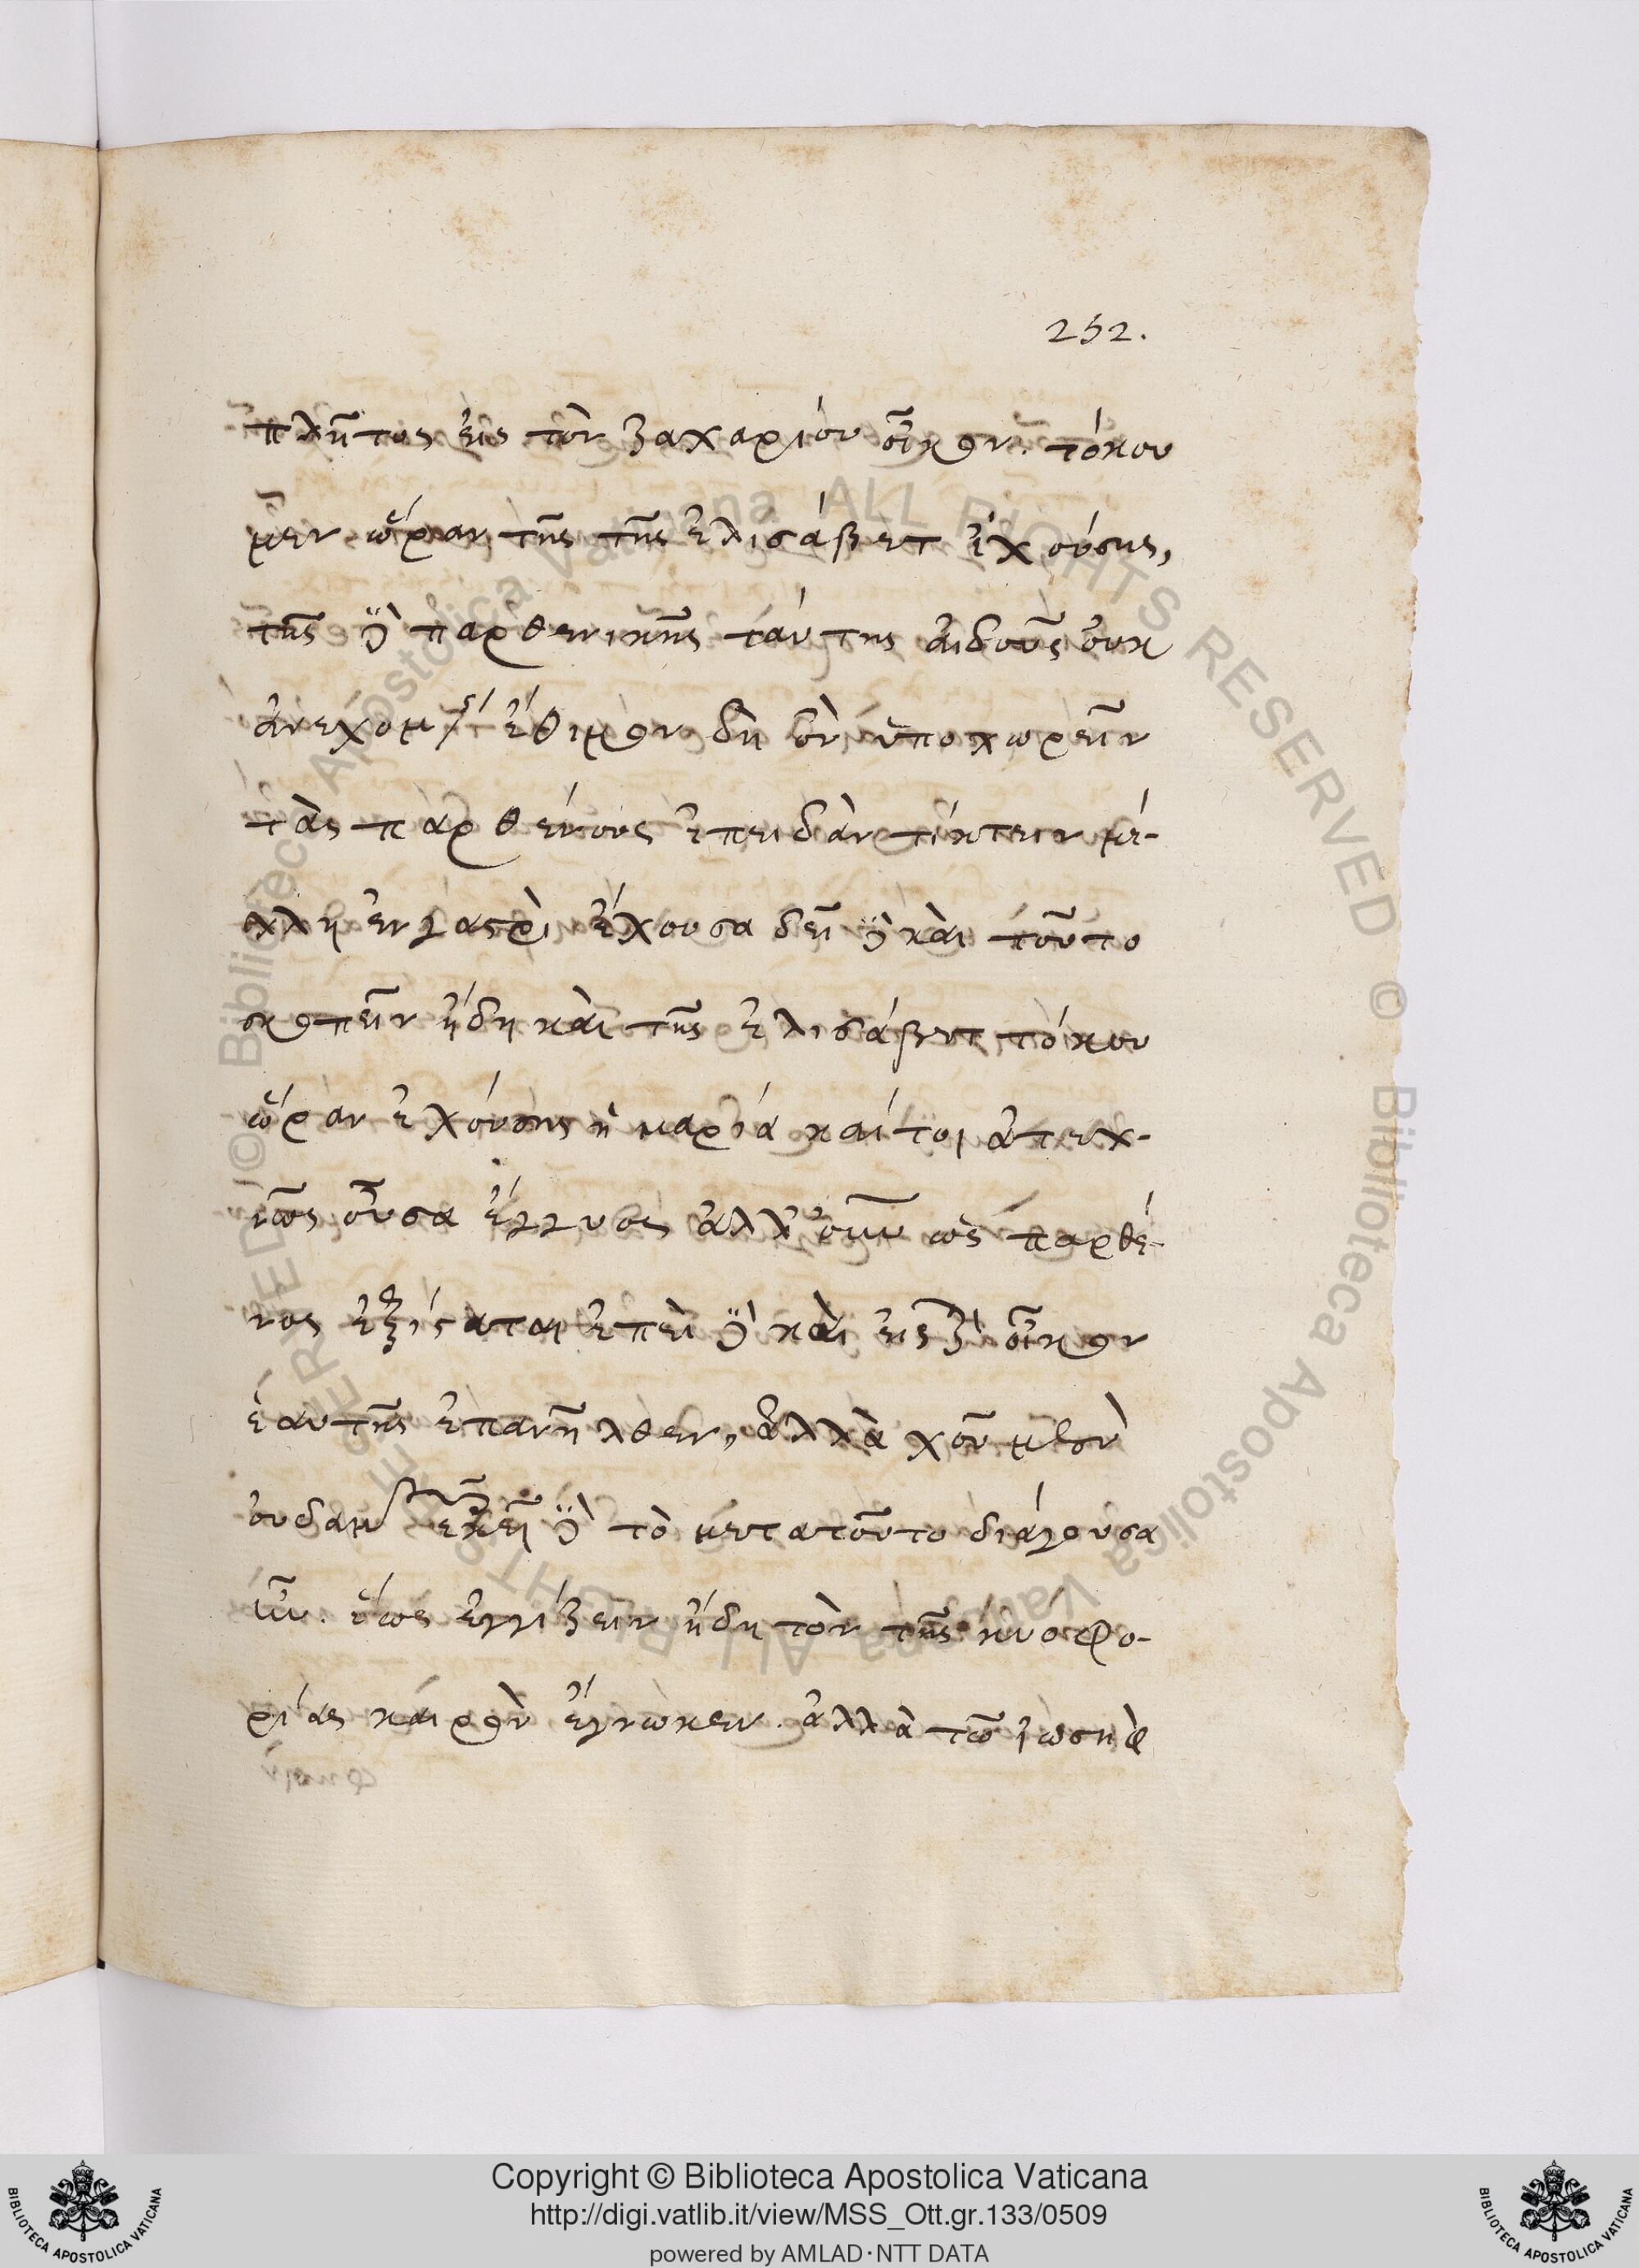 252.
πλῆτος εἰς τὸν ζαχαρίου οἶκον. τόκου
μὲν ὥραν τῆς τῆς ἐλισάβετ ἐχούσης,
τῆς δὲ παρθενικῆς ταύτης αἰδοῦς οὐκ
ἀνεχομ ἔθιμον δὴ ὂν ὑποχωρεῖν
τὰς παρθένους ἐπειδὰν τίκτειν μέ-
λλῃ ἐν γαστρὶ ἔχουσα δεῖ δὲ καὶ τοῦτο
σκοπεῖν ἤδη καὶ τῆς ἐλισάβετ τόκου
ὥραν ἐχούσης ἡ μαρία καίτοι ἀτεχ-
νῶς οὖσα ἔγγυος ἀλλ' οὖν ὡς παρθέ-
νος ἐξίσταται ἐπεὶ δὲ καὶ εἰς οἶκον
ἑαυτῆς ἐπανῆλθεν, ἀλλὰ χοῦ μὲν
οὐδαμ ἐκεῖ δὲ τὸ μετατοῦτο διάγουσα
ἦν. ἕως ἐγγίζειν ἤδη τὸν τῆς κυοφο-
ρίας καιρὸν ἔγνωκεν. ἀλλὰ τῶ ἰωσὴφ
Copyright © Biblioteca Apostolica Vaticana
http://digi.vatlib.it/view/MSS_Ott.gr.133/0509
powered by AMLAD·NTT DATA
BIBLIOTECA APOSTOLICA VATICANA
BIBLIOTECA APOSTOLICA VATICANA